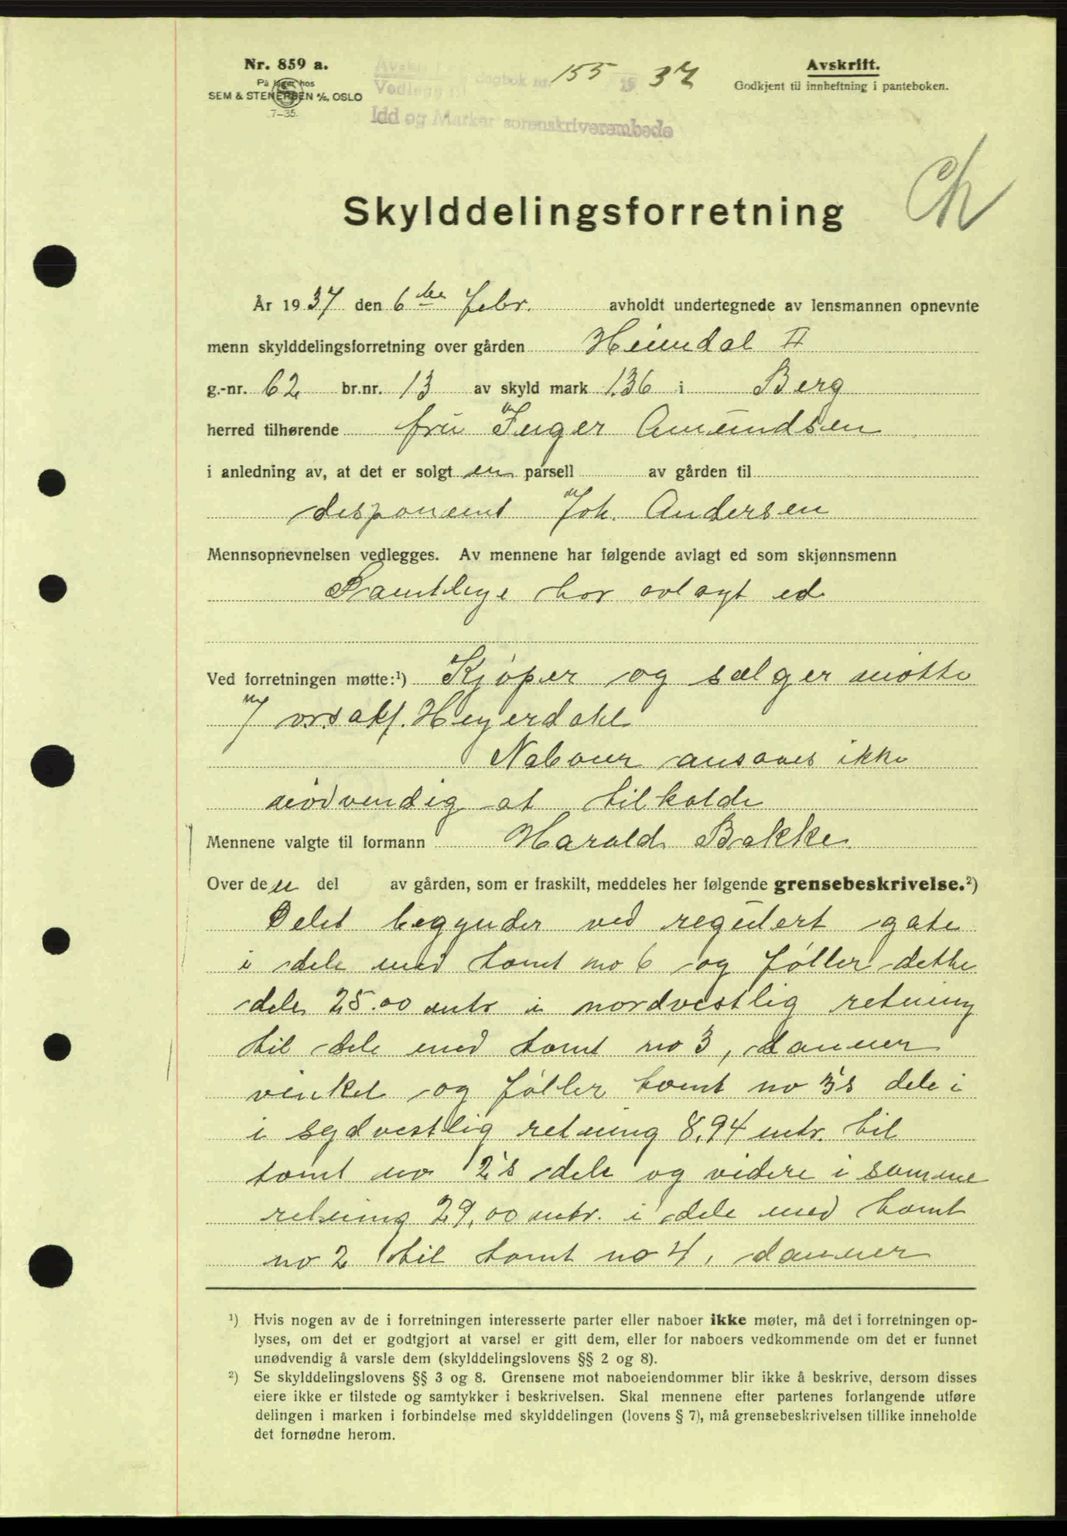 Nr. 859 a.
På lager hos
SEM & STENERSEN A/S, OSLO
7-35.
Vedlegg til dagbok nr. 155 19 37
Idd og Marker sorenskriverembede
Avskrift.
Godkjent til innheftning i panteboken.
Ch
Skylddelingsforretning
År 1937 den 6te febr. avholdt undertegnede av lensmannen opnevnte
menn skylddelingsforretning over gården Heimdal II
g.-nr. 62 br.nr. 13 av skyld mark 1.36 i Berg
herred tilhørende fru Inger Amundsen
i anledning av, at det er solgt en parsell av gården til
disponent Joh. Andersen
Mennsopnevnelsen vedlegges. Av mennene har følgende avlagt ed som skjønnsmenn
Samtlige har avlagt ed
Ved forretningen møtte:¹) Kjøper og sælger møtte
v/ o.r.sakf. Heyerdahl
Naboer ansaaes ikke
nødvendig at tilkalde
Mennene valgte til formann Harald Bakke.
Over den del av gården, som er fraskilt, meddeles her følgende grensebeskrivelse.²)
Delet begynder ved regulert gate
i dele med tomt no 6 og føller dette
dele 25.00 mtr i nordvestlig retning
til dele med tomt no 3, danner
vinkel og føller tomt no 3's dele i
i sydvestlig retning 8,94 mtr. til
tomt no 2's dele og videre i samme
retning 29,00 mtr. i dele med tomt
no 2 til tomt no 4, danner
¹) Hvis nogen av de i forretningen interesserte parter eller naboer ikke møter, må det i forretningen op-
lyses, om det er godtgjort at varsel er gitt dem, eller for naboers vedkommende om det er funnet
unødvendig å varsle dem (skylddelingslovens §§ 2 og 8).
²) Se skylddelingslovens §§ 3 og 8. Grensene mot naboeiendommer blir ikke å beskrive, dersom disses
eiere ikke er tilstede og samtykker i beskrivelsen. Skal mennene efter partenes forlangende utføre
delingen i marken i forbindelse med skylddelingen (lovens § 7), må grensebeskrivelsen tillike inneholde
det fornødne herom.